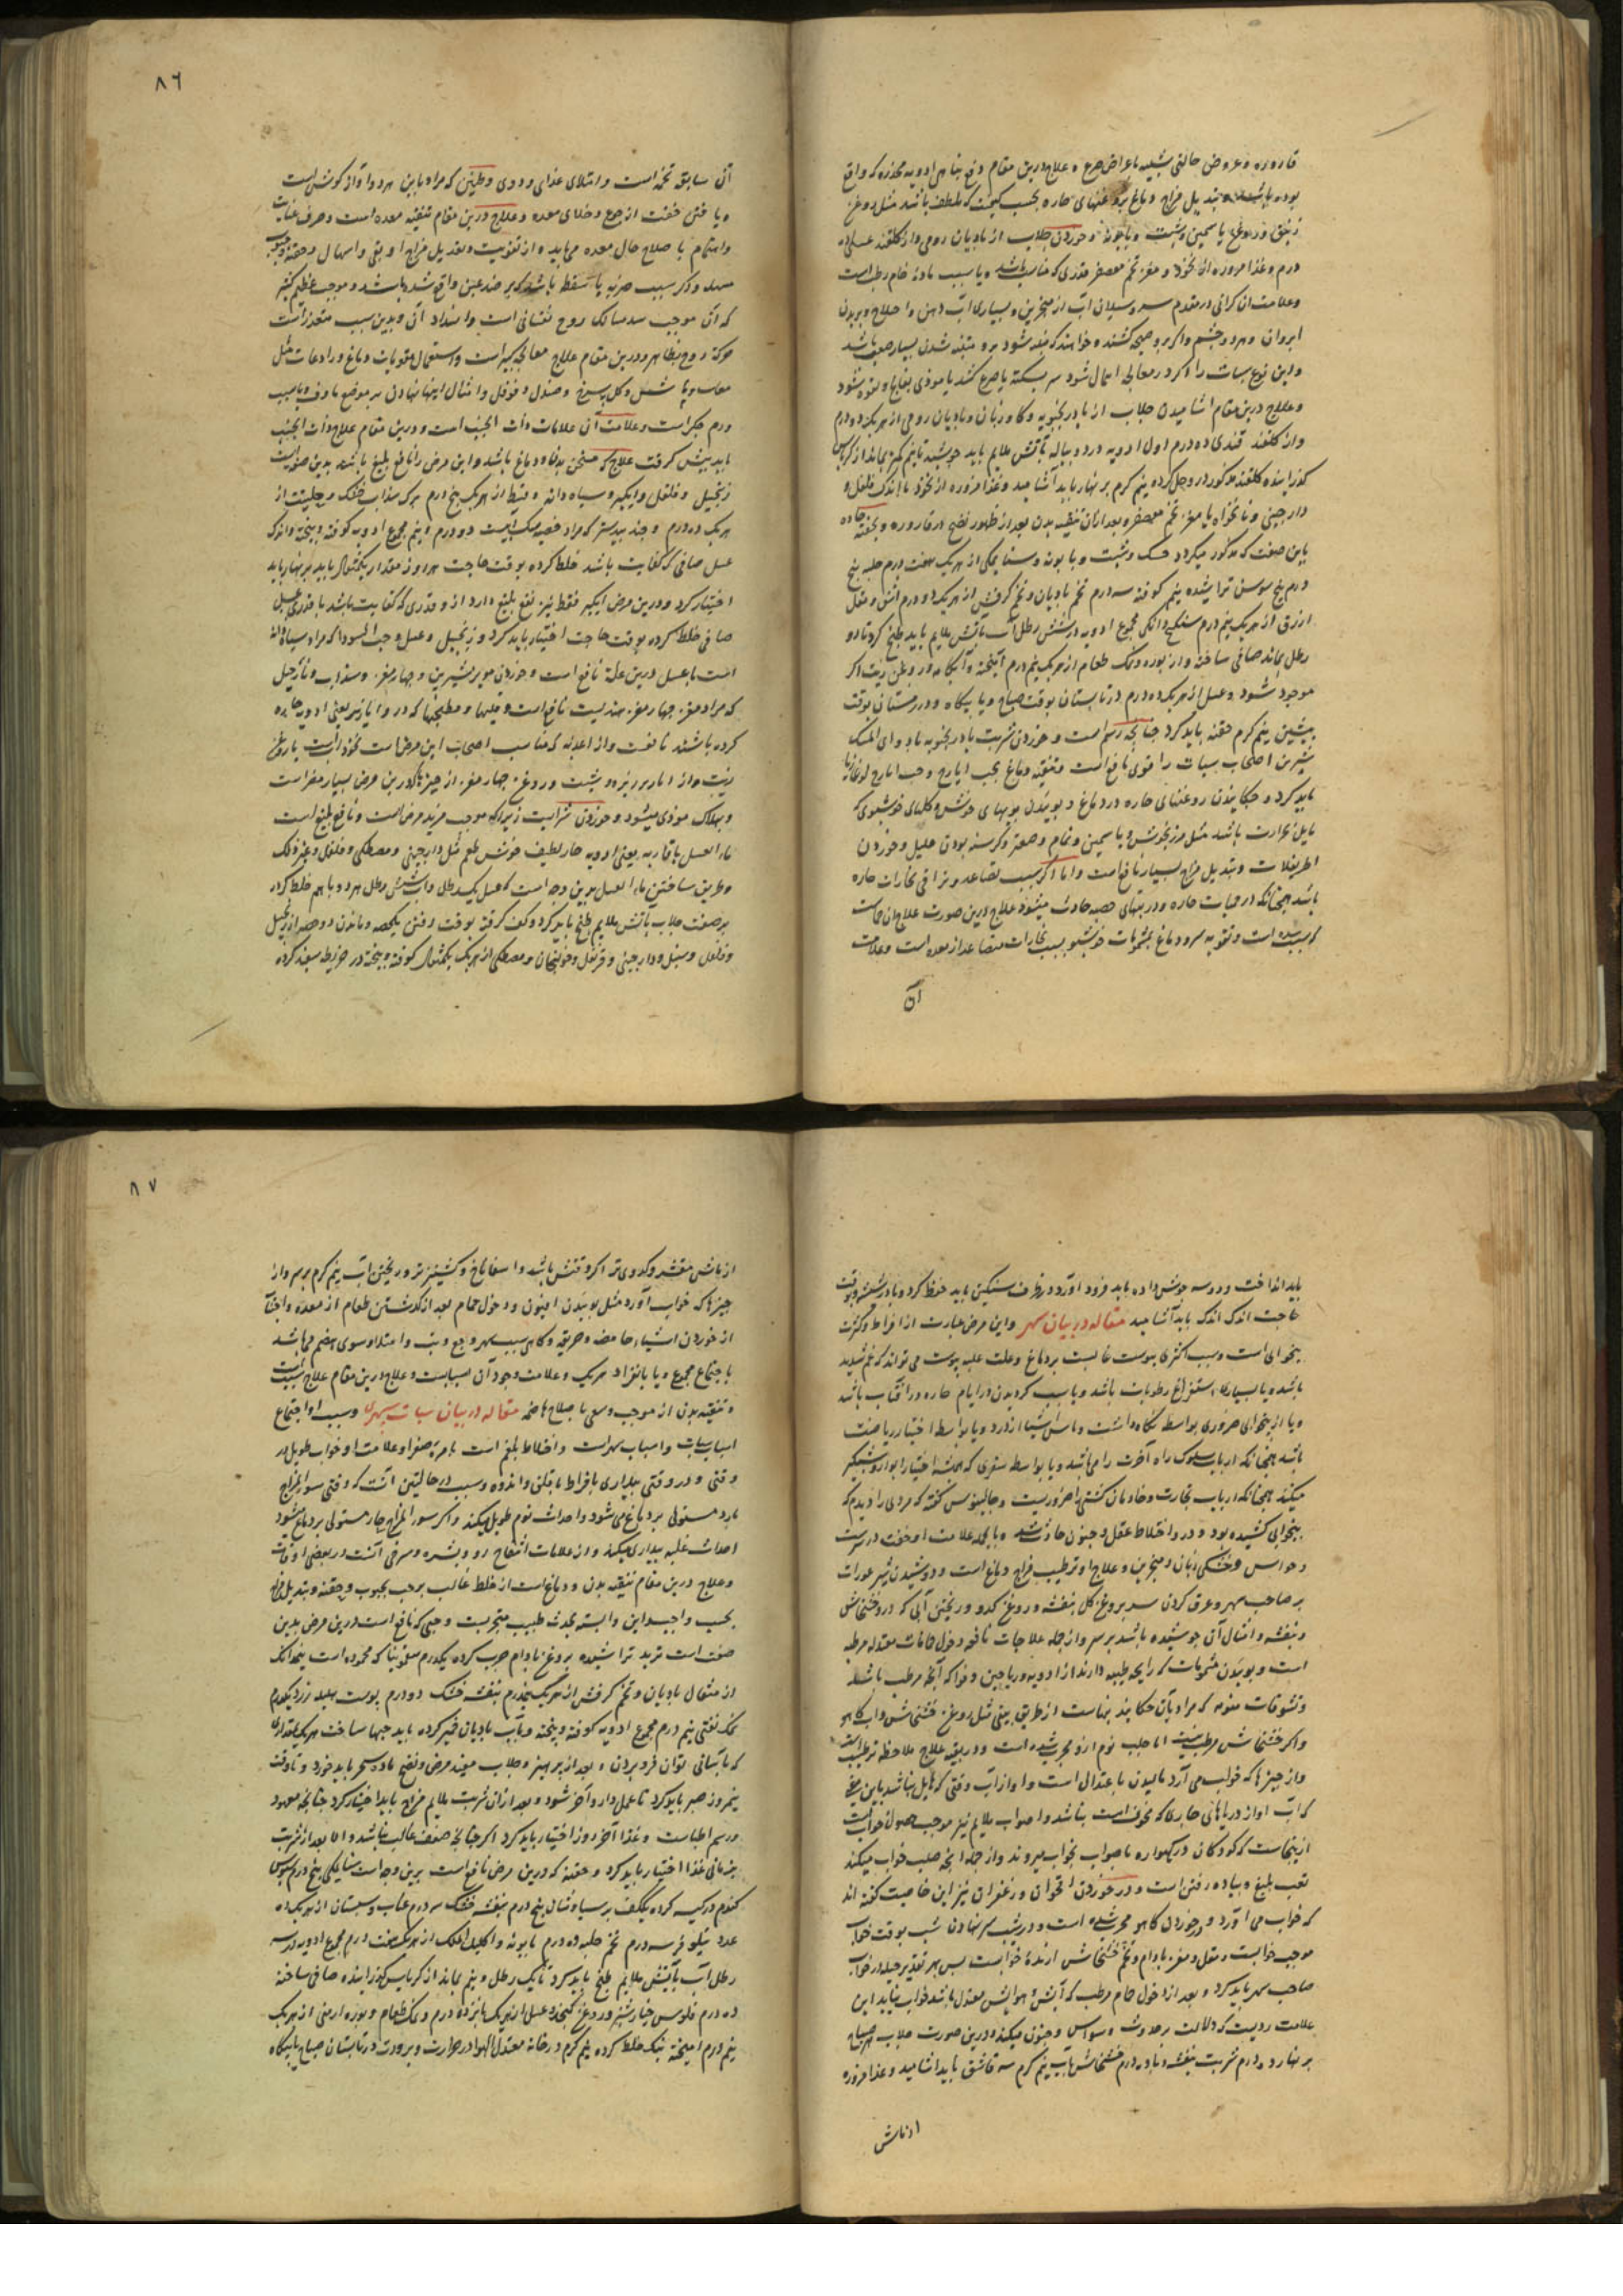 قاروره و عروض حالتی شبیه باعراض صرع و علاج درین مقام دفع ادویه مخدره که واقع
بوده باشد و تبدیل مزاج دماغ بروغنهای حاره بحسب کیفیت که ملطف باشد مثل روغن
زنبق و روغن یاسمین و شبت و بابونه و خوردن جلاب از بادیان رومی و از کلقند عسلی ده
درم و غذا مزوره از نخود و مغز تخم معصفر قدری که مناسب باشد و یا بسبب مادهٔ خام رطب است
و علامت ان کرانی در مقدم سر و سیلان اب از منخرین و بسیاری اب دهن و اختلاج و پریدن
ابروان و هر دو چشم و اکر برو صیحه کشند و خواهند که متنبه شود
و این نوع سبات را اکر در معالجه اهمال شود بسکته یا صرع کشد یا مودی بفالج و لقوه شود
و علاج درین مقام اشامیدن جلاب از بادرنجبویه و کاوزبان و بادیان رومی از هر یک دو درم
و از کلقند قندی ده درم اول ادویه در دو پیاله بآتش ملایم باید جوشید تا نیم کم بماند از کرباس
کذرانیده کلقند مذکور در و حل کرده نیم کرم بر نهار باید آشامید و غذا مزوره از نخود با اندک فلفل و
دارچینی و نانخواه یا مغز تخم معصفر و بعد از آن تنقیه بدن بعد از ظهور نضج از قاروره و بحقنه حاده
باین صفت که مذکور میکردد خسک و شبت و بابونه و سنا مکی از هر یک هفت درم حلبه پنج
درم بیخ سوسن تراشیده نیم کوفته سه درم تخم بادیان و تخم کرفس از هر یک دو درم اشق و مقل
ازرق از هر یک نیم درم سکبینج دانکی مجموع ادویه در شش رطل آب بآتش ملایم باید طبخ کرد تا دو
رطل بماند صافی ساخته و از بوره و نمک طعام از هر یک نیم درم آمیخته و آبکامه و روغن زیت اکر
موجود شود و عسل از هر یک ده درم در تابستان بوقت صباح و یا بیکاه و در زمستان بوقت
پیشین نیم کرم حقنه باید کرد چنانچه رسم است و خوردن شربت بادرنجبویه با دواء المسک
شیرین اصحاب سبات را قوی نافع است و تنقیه دماغ بحب ایارج و حب ایارج لوغاذیا
باید کرد و چکانیدن روغنهای حاره در دماغ و بوئیدن بویهای خوش و کلهای خوشبوی که
مایل بحرارت باشد مثل مرزنجوش و یاسمین و نمام و صعتر و کرسنه بودن علیل و خوردن
اطریفلات و تبدیل مزاج بسیار نافع است و اما اکر بسبب تصاعد و تراقی بخارات حاره
باشد همچنانکه در حمیات حاره و در تبهای حصبه حادث میشود علاج درین صورت علاج ان حمات
که سبب شده است و تقویه سر و دماغ بمشمومات خوشبو بسبب بخارات متصاعد از معده است و علامت
آن
٨٦
آن سابقه تخمه است و امتلای غذای و دوی و طنین که مراد باین هر دو آواز کوش است
و یا فتن خفت از جوع و خلای معده و علاج درین مقام تنقیه معده است و صرف عنایت
و اهتمام باصلاح حال معده می‌باید و از تقویت و تعدیل مزاج او بقی و اسهال و حقنه
و اکر بسبب ضربه یا سقطه باشد که بر صدغین واقع شده باشد و موجب عظم کثیر
که آن موجب سد مسالک روح نفسانی است و انسداد آن و بدین سبب متعذر است
حرکة روح بظاهر و درین مقام علاج معالجه کبیر است و استعمال مقویات دماغ و رادعات مثل
مامیثا شش و کل سرخ و صندل و فوفل و امثال اینها نهادن بر موضع ماوف و یا بسبب
ورم جکر است و علامت آن علامات ذات الجنب است و درین مقام علاج ذات الجنب
باید پیش کرفت علاج که مسخن بدن و دماغ باشد و این مرض را نافع بلیغ باشد بدین صفت است
زنجبیل و فلفل و ایکیر و سیاه دانه و قسط از هر یک پنج درم برک سذاب خشک و حلتیت از
هر یک ده درم و جند بیدستر که مراد خصیه سک ابیست دو درم و نیم مجموع ادویه کوفته و بیخته و اندک
عسل صافی که کفایت باشد خلط کرده بوقت حاجت هر روز مقدار یکمثقال باید بر نهار باید
اختیار کرد و درین مرض ایکیر فقط نیز نفع بلیغ دارد از و قدری که کفایت باشد با قدری عسل
صافی خلط کرده بوقت حاجت اختیار باید کرد و زنجبیل و عسل و حب السودا که مراد سیاه دانه
است با عسل درین علة نافع است و خوردن مویز شیرین و چهار مغز و سذاب و نارجیل
که مراد مغز چهار مغز هندیست نافع است و قلیها و مطبخها که در و ابازیر یعنی ادویه حاره
کرده باشند نافعست و از اغذیه که مناسب اصحاب این مرض است نخود آب است با روغن
زیت و از ابازیر زیره و شبت و روغن چهار مغز از چیزها که درین مرض بسیار مضر است
و بهلاک مودی میشود و خوردن شرابست زیرا که موجب مزید مرض است و نافع بلیغ است
ماء العسل با فاویه یعنی ادویه حار لطیف خوش طعم مثل دارچینی و مصطکی و فلفل و غیر ذلک
و طریق ساختن ماء العسل بدین وجه است که عسل یک رطل و آب شش رطل هر دو باهم خلط کرده
بر صفت جلاب بآتش ملایم طبخ باید کرد و کف کرفته بوقت رفتن یک حصه و ماندن دو حصه از زنجبیل
و فلفل و سنبل و دارچینی و قرنفل و خولنجان و مصطکی از هر یک یکمثقال کوفته و بیخته در خریطه سفید کرده
باید انداخت و دو سه جوش داده باید فرود آورد و در ظرف سنکین باید حفظ کرد و بادرشیشه و بوقت
حاجت اندک اندک باید آشامید مقاله در بیان سهر و این مرض عبارت از افراط و کثرت
بیخوابی است و سبب اکثری یبوست غالبست بر دماغ و علت غلبه یبوست می تواند که غم شدید
باشد و یا بسیاری استفراغ رطوبات باشد و یا بسبب کردیدن در ایام حاره در آفتاب باشد
و یا از بیخوابی ضروری بواسطه نکاه داشت و پاس اشیا از دزد و یا بواسطه اختیار ریاضت
باشد همچنانکه ارباب سلوک راه آخرت را می‌باشد و یا بواسطه سفری که اختیار ایوار و شبکیر
میکند همچنانکه ارباب تجارت و خادمان کشتی را ضروریست و جالینوس کفته که مردی را دیدم که
بیخوابی کشیده بود و در و اختلاط عقل و جنون حادث شد و بالجمله علامت او خفت در سرست
و حواس و خشکی زبان و منخرین و علاج او ترطیب مزاج دماغ است و دوشیدن شیر عورات
بر صاحب سهر و غرق کردن سر بروغن کل بنفشه و روغن کدو و ریختن آبی که در و خشخاش
و بنفشه و امثال آن جوشیده باشد بر سر و از جمله علاجات نافعه دخول حمامات معتدله مرطبه
است و بوییدن مشمومات که رایحه طیبه دارند از ادویه و ریاحین و فواکه آنچه مرطب باشد
و نشوقات منومه که مراد بان چکانیدنهاست از طریق بینی مثل روغن خشخاش و آب کاهو
و اکر خشخاش مرطب نیست اما جلب نوم ازو مجرب شده است و در بقیه علاج ملاحظه ترطیب است
و از چیزها که خواب می آرد مالیدن باعتدال است و آواز آب وقتی که هایل نباشد باین معنی
که آب آواز دریاهای جاری که مخوف است نباشد و اصوات ملایم نیز موجب حصول خواب است
ازینجاست که کودکان در کهواره باصوات بخواب میروند و از جمله آنچه جلب خواب میکند
تعب بلیغ و پیاده رفتن است و در خوردن اقحوان و زعفران نیز این خاصیت کفته اند
که خواب می آورد و خوردن کاهو مجرب شده است و در شب سر نهادن شب بوقت خواب
موجب خوابست و نقل و مغز بادام و تخم خشخاش آرندهٔ خوابست پس بهر تقدیر حیله در خواب
صاحب سهر باید کرد و بعد از دخول حمام مرطب که آبش و هوایش معتدل باشد خواب نیاید این
علامت ردیست که دلالت بر حدوث وسواس و جنون میکند و درین صورت جلاب هر صباح
بر نهار ده درم شربت بنفشه و نیلوفر ده درم خشخاش بآب نیم کرم سه قاشق باید اشامید و غذا مزوره
از ماش
٨٧
از ماش مقشر و کدوی تر اکر وقتش باشد و اسفاناخ و کشنیز تر و ریختن اب نیم کرم بر سر و از
چیزها که خواب آورد مثل بوییدن افیون و دخول حمام بعد از کذشتن طعام از معده و اجتناب
از خوردن اشیاء حامضه و حریقه و کاهی سبب سهر وجع و تب و امتلا و سوی هضم می‌باشد
باجتماع مجموع و یا بانفراد هر یک و علامت وجود آن اسبابست و علاج درین مقام علاج سبب است
و تنقیه بدن از موجب و سعی باصلاح هاضمه مقاله در بیان سبات سهری و سبب او اجتماع
اسباب سبات و اسباب سهر است و اختلاط بلغم است با مرهٔ صفرا و علامت او خواب طویل در
وقتی و در وقتی بیداری بافراط با قلق و اندوه و سبب در حالتین آنست که وقتی سوءالمزاج
بارد مستولی بر دماغ می شود و احداث نوم طویل میکند و اکر سوءالمزاج حار مستولی بر دماغ میشود
احداث غلبه بیداری میکند و از علامات انتفاخ رو و بشره و سرخی آنست در بعضی اوقات
و علاج درین مقام تنقیه بدن و دماغ است از خلط غالب بر حسب بحبوب و حقنه و تبدیل مزاج
بحسب واجب و این وابسته بحدث طبیب متجربست و حبی که نافع است درین مرض بدین
صفت است تربد تراشیده بروغن بادام چرب کرده یکدرم سقمونیا که محموده است نیم دانک
از مثقال بادیان و تخم کرفس از هر یک نیمدرم بنفشه خشک دو درم پوست هلیله زرد یکدرم
نمک نفطی نیم درم مجموع ادویه کوفته و بیخته و بآب بادیان خمیر کرده باید حبها ساخت هر یک بقداری
که بآسانی توان فرو بردن و بعد از پرهیز و جلاب مفید مرض و نضج ماده سحر باید خورد و تا وقت
نیمروز صبر باید کرد تا عمل دارو آخر شود و بعد از آن شربت ملایم مزاج باید اختیار کرد چنانچه معهود
و رسم اطباست و غذا آخر روز اختیار باید کرد اکر چنانچه ضعف غالب نباشد و الا بعد از شربت
بزمانی غذا اختیار باید کرد و حقنه که درین مرض نافع است برین وجه است سنا مکی پنج درم سبوس
کندم در کیسه کرده یک کف پر سیاوشان پنج درم بنفشه خشک سه درم عناب و سپستان از هر یک ده
عدد نیلوفر سه درم تخم حلبه ده درم بابونه و اکلیل الملک از هر یک هفت درم مجموع ادویه در سه
رطل آب بآتش ملایم طبخ باید کرد تا یک رطل و نیم بماند از کرباس کذرانیده صافی ساخته
ده درم فلوس خیارشنبر و روغن کنجد و عسل از هر یک پانزده درم و نمک طعام و بوره ارمنی از هر یک
نیم درم آمیخته نیک خلط کرده نیم کرم در خانه معتدل الهوا در حرارت و برودت در تابستان صباح یا بیکاه